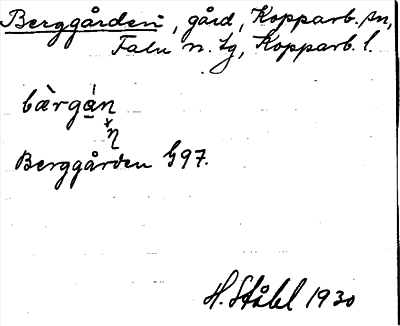 Berggården, gård, Kopparb. sn,
Falu n. tg, Kopparb. l.
bàrgán
ŋ
Berggården G97.
H. Ståhl 1930